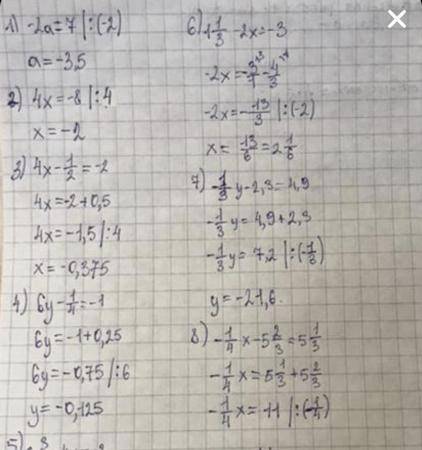 1) -2a=7 |:(-2)
a=-3,5
2) 4x=-8 |:4
x=-2
3) 4x-1/2=-2
4x=-2+0,5
4x=-1,5 |:4
x=-0,375
4) 6y-1/4=-1
6y=-1+0,25
6y=-0,75 |:6
y=-0,125
5)
6) 1 1/3 -2x=-3
-2x=-3/1-4/3
-2x=-13/3 |:(-2)
x= 13/6 =2 1/6
7) -1/3 y-2,3=4,9
-1/3 y=4,9+2,3
-1/3 y= 7,2 |:(-1/3)
y=-21,6
8) -1/4 x-5 2/3=5 1/3
-1/4 x=5 1/3+5 2/3
-1/4 x=11 |:(-1/4)